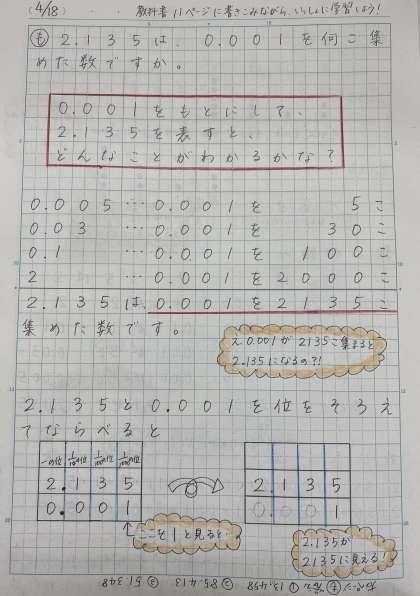 (4/18) 教科書11ページに書きこみながら、いっしょに学習しよう!
も 2.135は、0.001を何こ集
めた数ですか。
0.001をもとにして、
2.135を表すと、
どんなことがわかるかな?
0.005 …0.001を 5こ
0.03 …0.001を 30こ
0.1 …0.001を 100こ
2 …0.001を2000こ
2.135は、0.001を2135こ
集めた数です。
え、0.001が2135こ集まると
2.135になるの?!
2.135と0.001を位をそろえ
てならべると
一の位 1/10の位 1/100の位 1/1000の位
2.135
0.001
2.135
0.001
ここを1と見ると
2.135が
2135に見える
① 13,458 ② 85.413 ③ 51.348